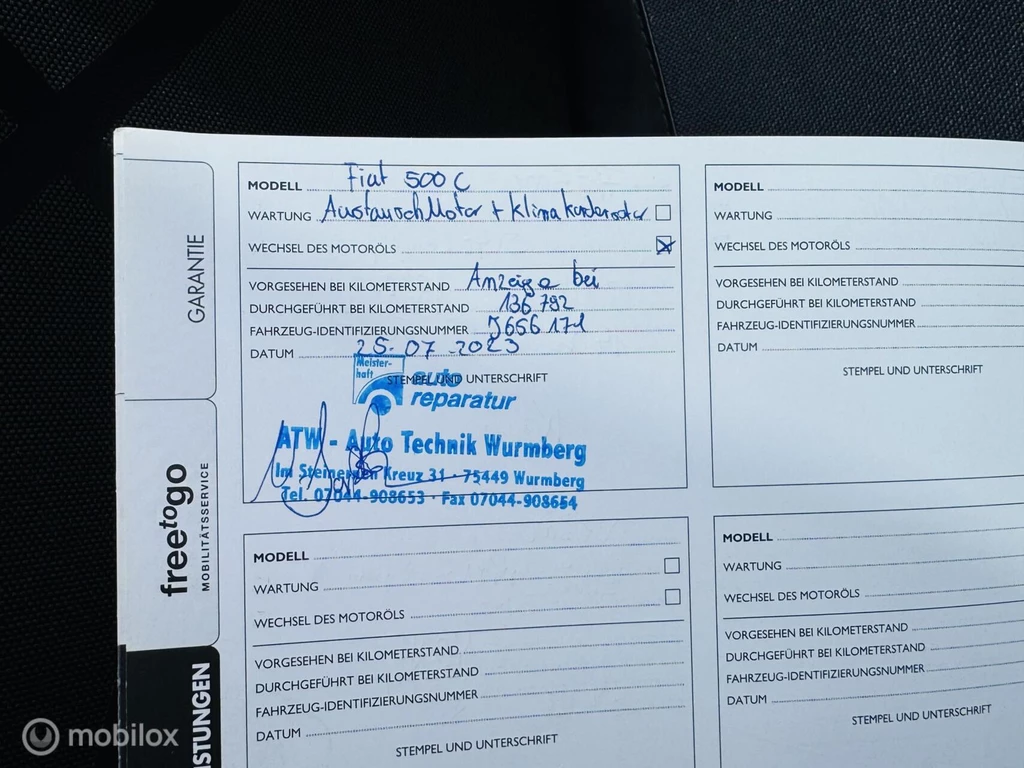 GARANTIE
freetogo
MOBILITÄTSSERVICE
STUNGEN
MODELL Fiat 500 C
WARTUNG Austausch Motor + Klimakondensator
WECHSEL DES MOTORÖLS
VORGESEHEN BEI KILOMETERSTAND Anzeige bei
DURCHGEFÜHRT BEI KILOMETERSTAND 136 792
FAHRZEUG-IDENTIFIZIERUNGSNUMMER J656 171
DATUM 25.07.2023
STEMPEL UND UNTERSCHRIFT
Meister-
haft
auto
reparatur
ATW - Auto Technik Wurmberg
Im Steinernen Kreuz 31 · 75449 Wurmberg
Tel. 07044-908653 · Fax 07044-908654
MODELL
WARTUNG
WECHSEL DES MOTORÖLS
VORGESEHEN BEI KILOMETERSTAND
DURCHGEFÜHRT BEI KILOMETERSTAND
FAHRZEUG-IDENTIFIZIERUNGSNUMMER
DATUM
STEMPEL UND UNTERSCHRIFT
MODELL
WARTUNG
WECHSEL DES MOTORÖLS
VORGESEHEN BEI KILOMETERSTAND
DURCHGEFÜHRT BEI KILOMETERSTAND
FAHRZEUG-IDENTIFIZIERUNGSNUMMER
DATUM
STEMPEL UND UNTERSCHRIFT
MODELL
WARTUNG
WECHSEL DES MOTORÖLS
VORGESEHEN BEI KILOMETERSTAND
DURCHGEFÜHRT BEI KILOMETERSTAND
FAHRZEUG-IDENTIFIZIERUNGSNUMMER
DATUM
STEMPEL UND UNTERSCHRIFT
mobilox